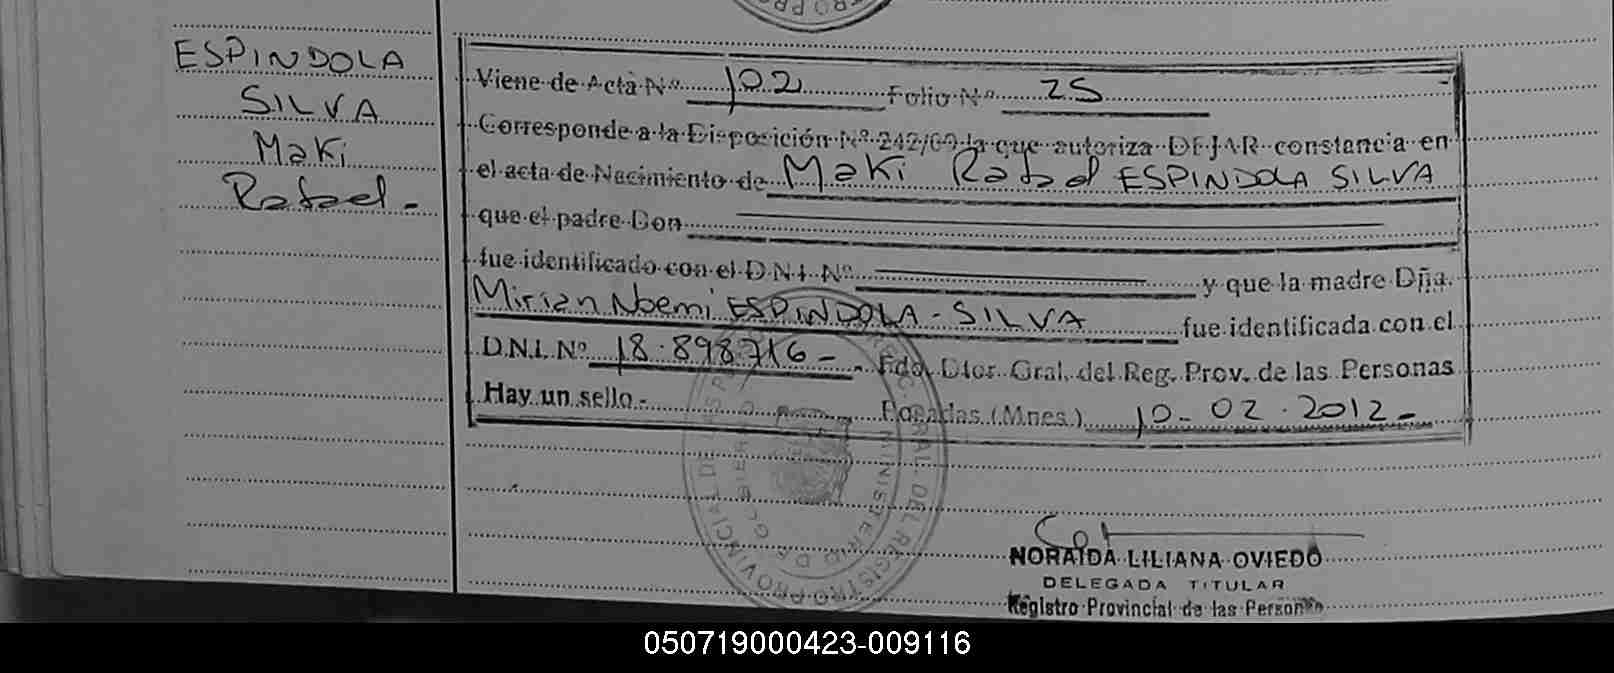 ESPINDOLA
SILVA
Maki
Rafael -
Viene de Acta Nº 102 Folio Nº 25
Corresponde a la Disposición Nº 242/60 la que autoriza DEJAR constancia en
el acta de Nacimiento de Maki Rafael ESPINDOLA SILVA
que el padre Don
fue identificado con el D.N.I. Nº y que la madre Dña.
Mirian Noemi ESPINDOLA - SILVA fue identificada con el
D.N.I. Nº 18.898716 - Fdo. Dtor. Gral. del Reg. Prov. de las Personas
Hay un sello - Posadas (Mnes.) 10 - 02 . 2012 -
NORAIDA LILIANA OVIEDO
DELEGADA TITULAR
Registro Provincial de las Personas
050719000423-009116